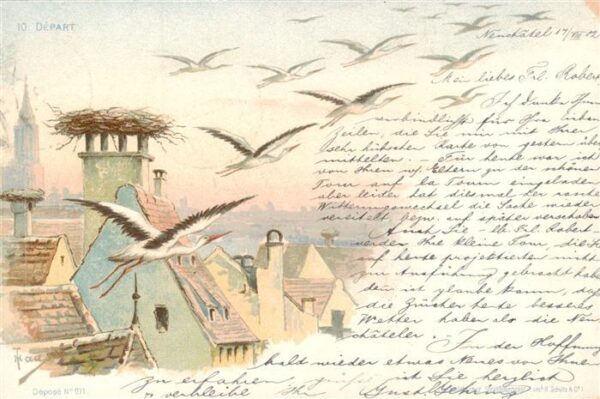 10. DÉPART
Neuchâtel 17/VIII 02
Mein liebes Frl. Robert
Ich danke Ihnen
verbindlichst für Ihre lieben
Zeilen, die Sie mir mit Ihrer
sehr hübschen Karte von gestern über-
mittelten. – Für heute war ich
von Ihren Eltern zu der schönen
Tour auf La Tourn eingeladen
aber leider hat diesmal der rasche
Witterungswechsel die Sache wieder
vereitelt, bezw. auf später verschoben
Auch Sie – lb. Frl. Robert
werden Ihre kleine Tour, die Sie
auf heute projektierten nicht
zur Ausführung gebracht haben
denn ich glaube kaum, daß
die Zürcher heute besseres
Wetter haben als die Neu-
châteler
In der Hoffnung
bald wieder etwas Neues von Ihnen
zu erfahren, grüße ich Sie herzlich
& verbleibe Ihr Gust.
Déposé Nº 691.